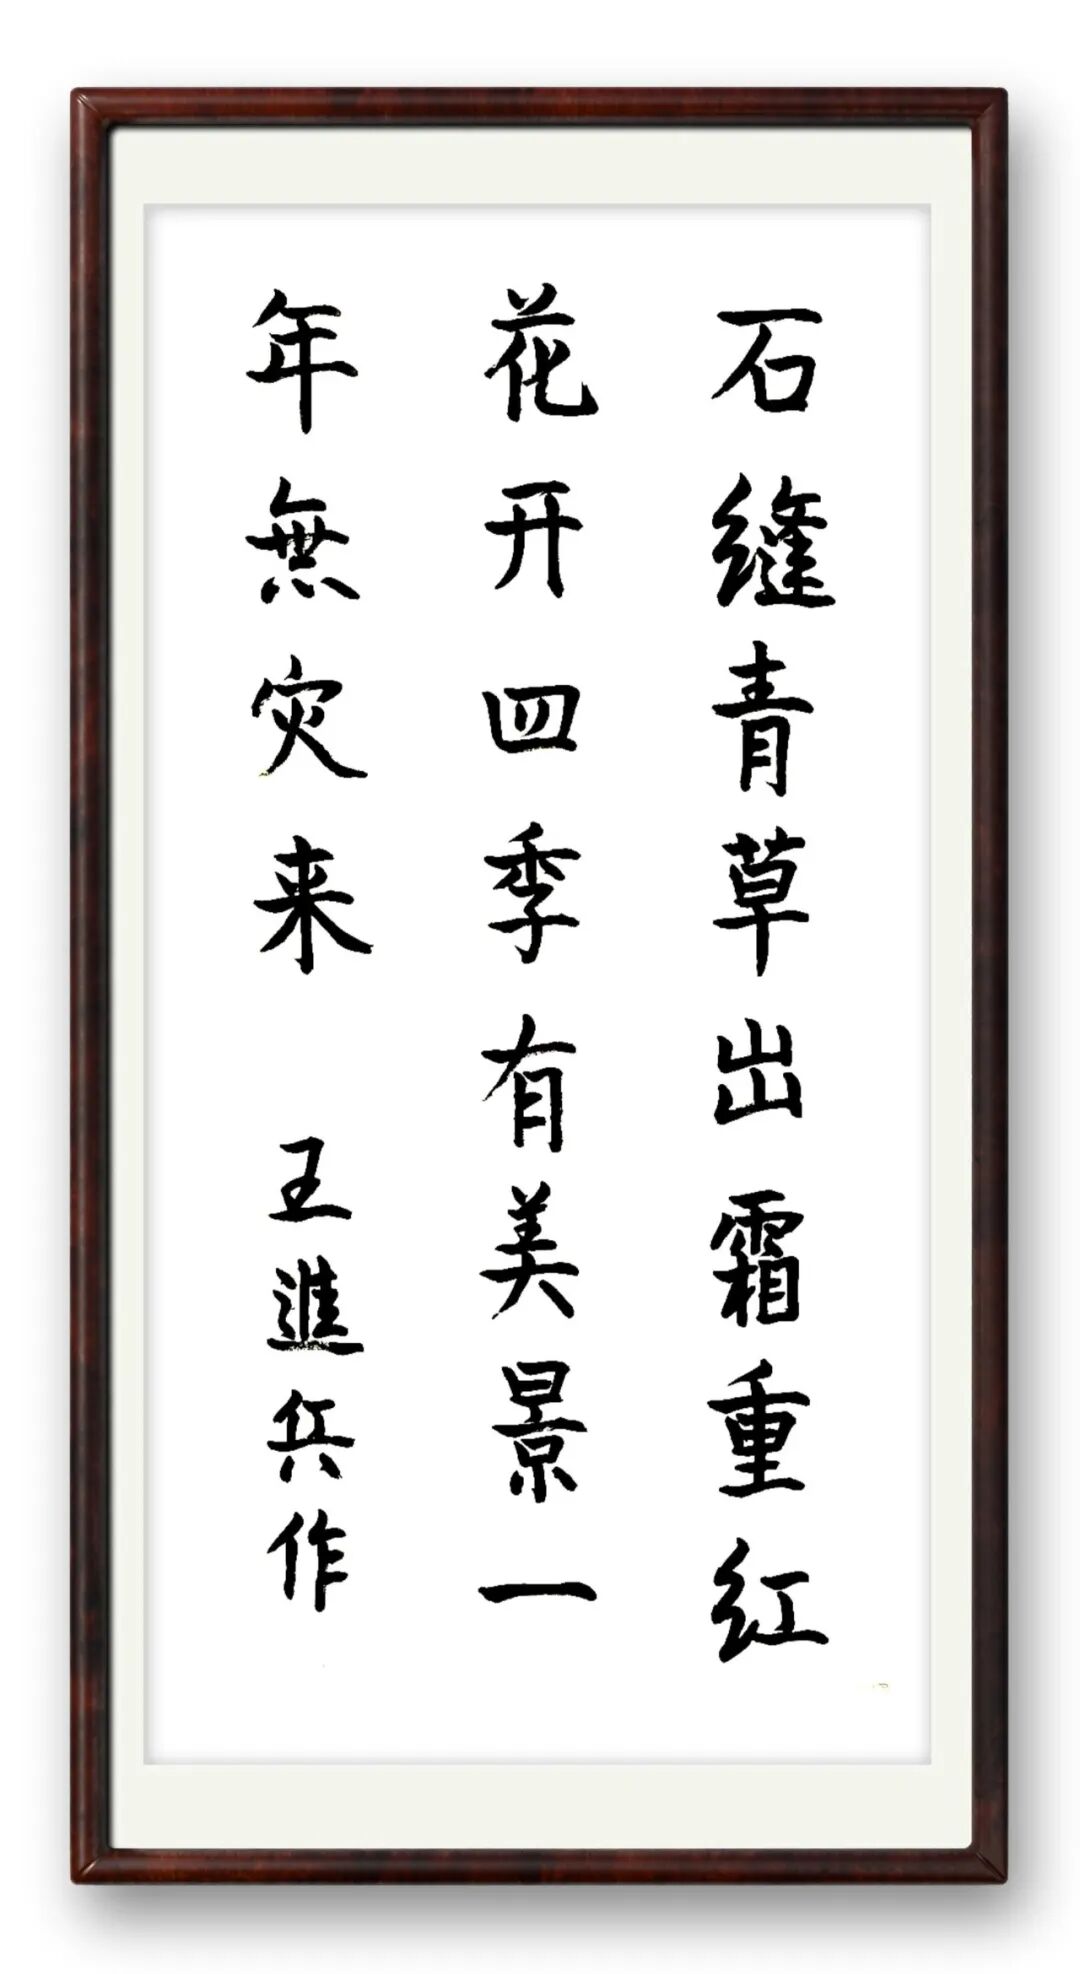 石缝青草出霜重红
花开四季有美景一
年無灾来 王進兵作